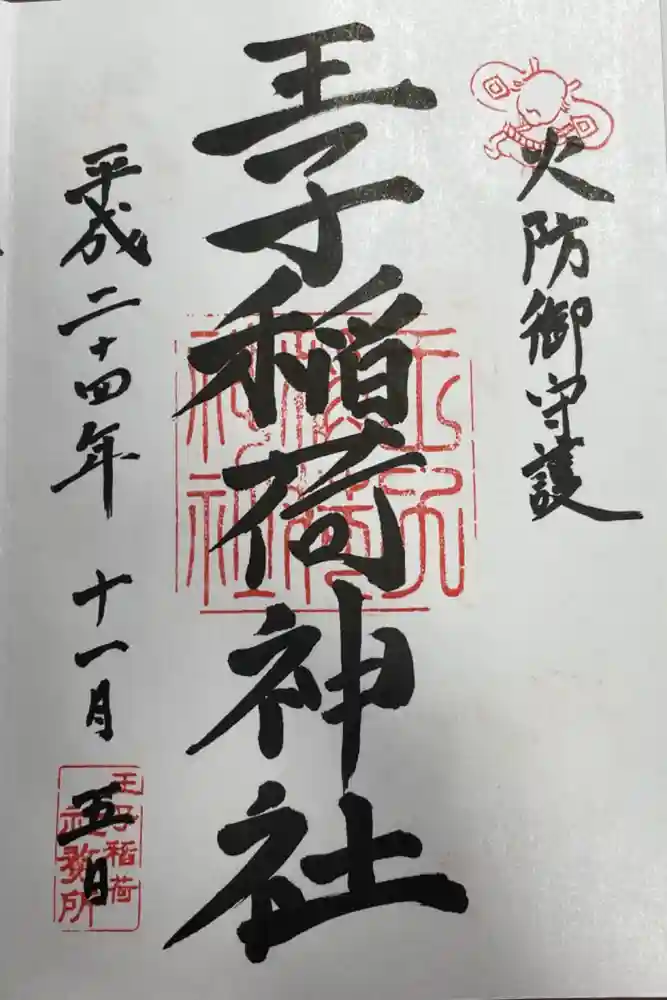 火防御守護
王子稲荷神社
王子
稲荷
神社
平成二十四年 十一月 五日
王子稲荷
社務所